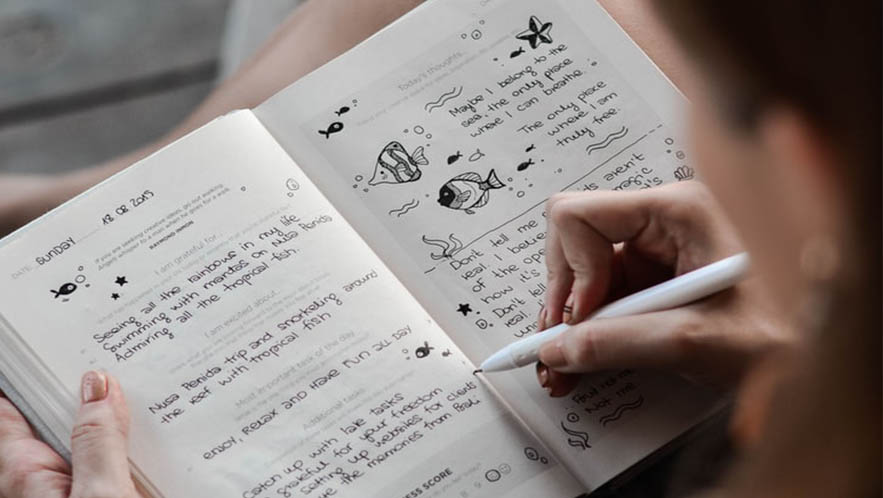 DATE: SUNDAY 18 08 2015
If you are seeking creative ideas, go out walking.
Angels whisper to a man when he goes for a walk.
RAYMOND INMON
I am grateful for
Seeing all the rainbows in my life
Swimming with mantas on Nusa Penida
Admiring all the tropical fish.
I am excited about...
Nusa Penida trip and snorkeling around
the reef with tropical fish
Most important task of the day
enjoy, Relax and Have fun all day
Additional tasks
Catch up with late tasks
grateful for your freedom
Setting up websites for clients
the memories from Bali
ESS SCORE
8 9
Today's thoughts...
Maybe I belong to the
sea, the only place
where I can breathe.
The only place
where I am
truly free.
aren't
magic
Don't tell me
real. I believe
of the
how it's
Don't tell
real.
Not me.